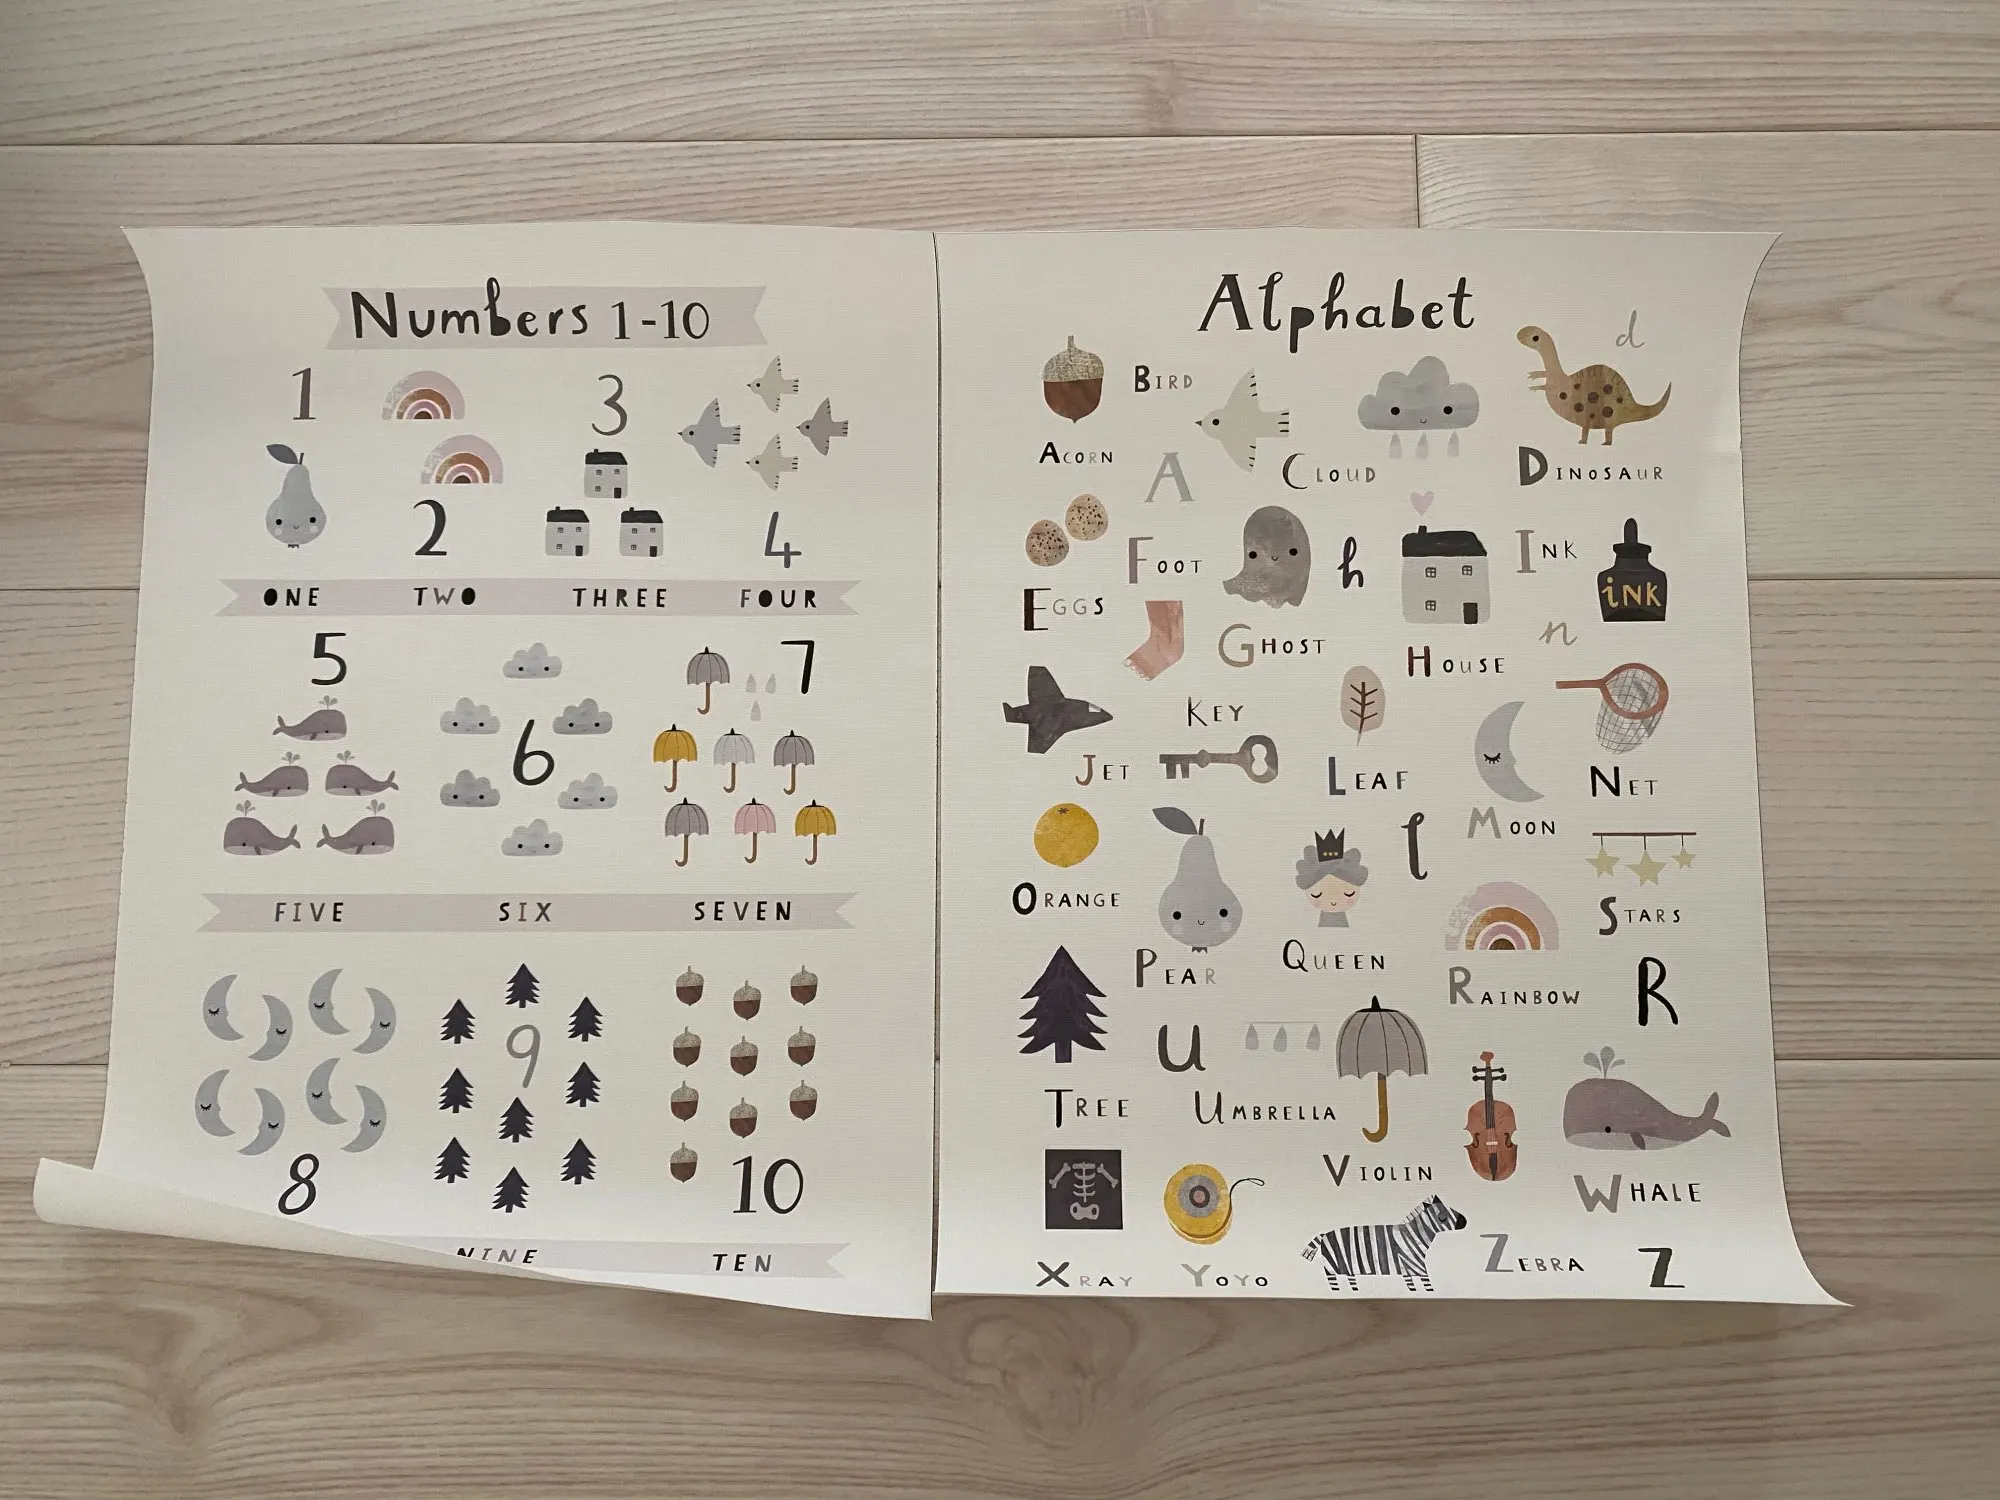 Numbers 1-10
1
3
2
4
ONE TWO THREE FOUR
5
7
6
FIVE SIX SEVEN
9
8
10
NINE TEN
Alphabet
d
BIRD
ACORN
A
CLOUD
DINOSAUR
FOOT
h
INK
iNK
EGGS
GHOST
HOUSE
n
KEY
JET
LEAF
NET
l
MOON
ORANGE
STARS
PEAR
QUEEN
RAINBOW
R
u
TREE
UMBRELLA
VIOLIN
WHALE
XRAY
YOYO
ZEBRA
Z